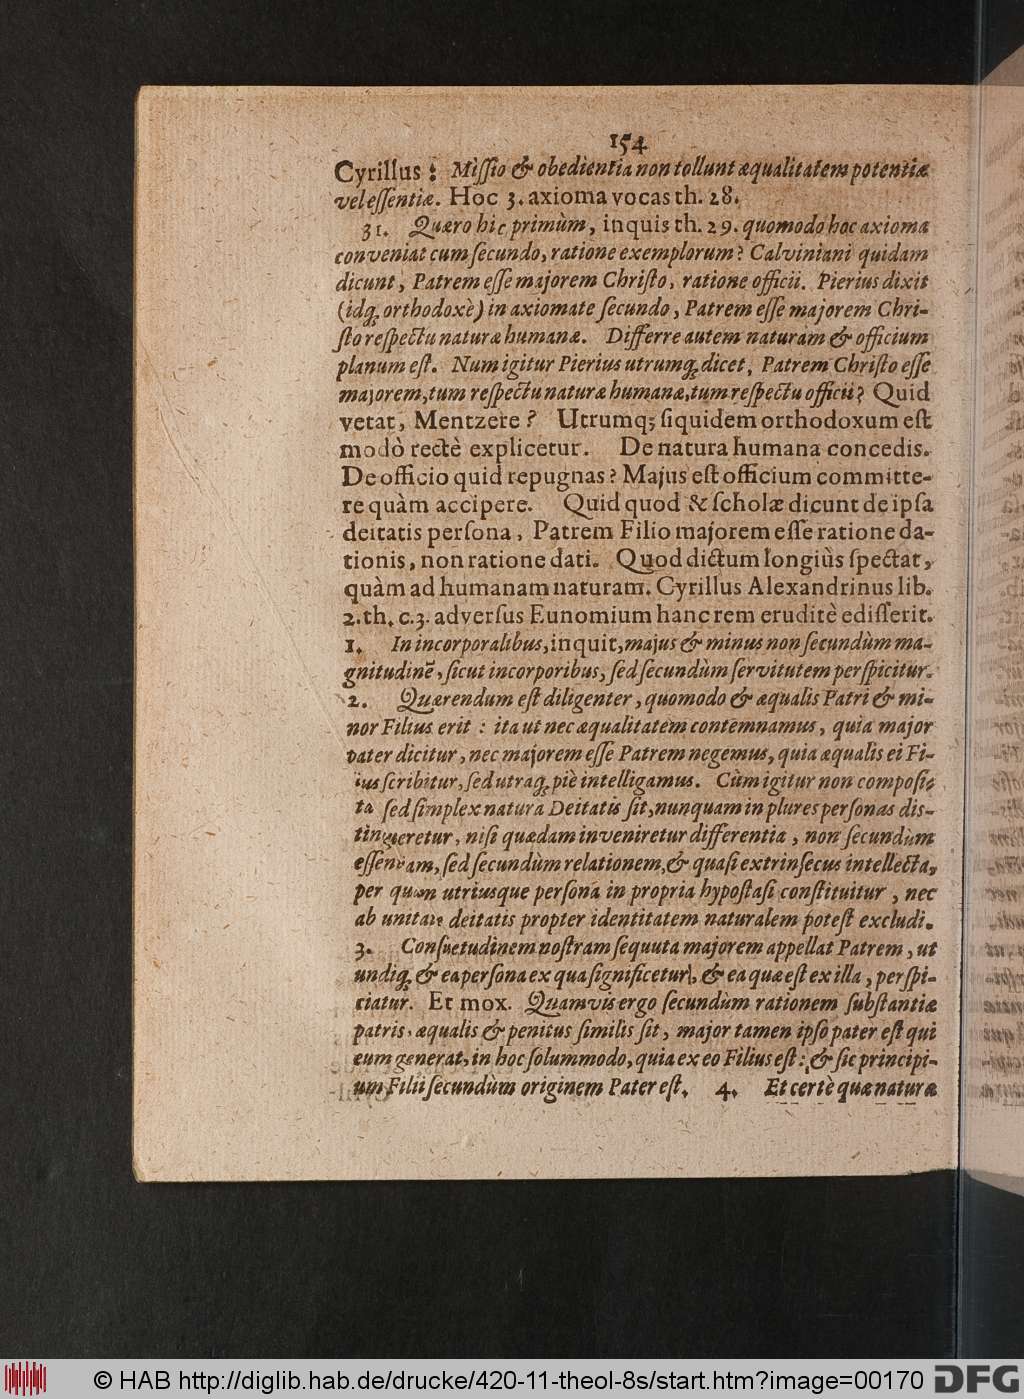 154
Cyrillus: Missio & obedientia non tollunt æqualitatem potentiæ
vel essentiæ. Hoc 3. axioma vocas th. 28.
31. Quæro hic primùm, inquis th. 29. quomodo hoc axioma
conveniat cum secundo, ratione exemplorum? Calviniani quidam
dicunt, Patrem esse majorem Christo, ratione officii. Pierius dixit
(idq; orthodoxè) in axiomate secundo, Patrem esse majorem Chri-
sto respectu naturæ humanæ. Differre autem naturam & officium
planum est. Num igitur Pierius utrumq; dicet, Patrem Christo esse
majorem, tum respectu naturæ humanæ, tum respectu officii? Quid
vetat, Mentzere? Utrumq; siquidem orthodoxum est
modò rectè explicetur. De natura humana concedis.
De officio quid repugnas? Majus est officium committe-
re quàm accipere. Quid quod & scholæ dicunt de ipsa
deitatis persona, Patrem Filio majorem esse ratione da-
tionis, non ratione dati. Quod dictum longiùs spectat,
quàm ad humanam naturam. Cyrillus Alexandrinus lib.
2. th. c. 3. adversus Eunomium hanc rem eruditè edisserit.
1. In incorporalibus, inquit, majus & minus non secundùm ma-
gnitudinē, sicut in corporibus, sed secundùm servitutem perspicitur.
2. Quærendum est diligenter, quomodo & æqualis Patri & mi-
nor Filius erit: ita ut nec æqualitatem contemnamus, quia major
pater dicitur, nec majorem esse Patrem negemus, quia æqualis ei Fi-
ius scribitur, sed utraq; piè intelligamus. Cùm igitur non composi-
ta sed simplex natura Deitatis sit, nunquam in plures personas dis-
tingueretur, nisi quædam inveniretur differentia, non secundùm
essentiam, sed secundùm relationem, & quasi extrinsecus intellecta,
per quam utriusque persona in propria hypostasi constituitur, nec
ab unitate deitatis propter identitatem naturalem potest excludi.
3. Consuetudinem nostram sequuta majorem appellat Patrem, ut
undiq; & ea persona ex qua significetur, & ea quæ est ex illa, perspi-
ciatur. Et mox. Quamvis ergo secundùm rationem substantiæ
patris, æqualis & penitus similis sit, major tamen ipso pater est qui
eum generat, in hoc solummodo, quia ex eo Filius est: & sic principi-
um Filii secundùm originem Pater est. 4. Et certè quæ naturæ
© HAB http://diglib.hab.de/drucke/420-11-theol-8s/start.htm?image=00170 DFG